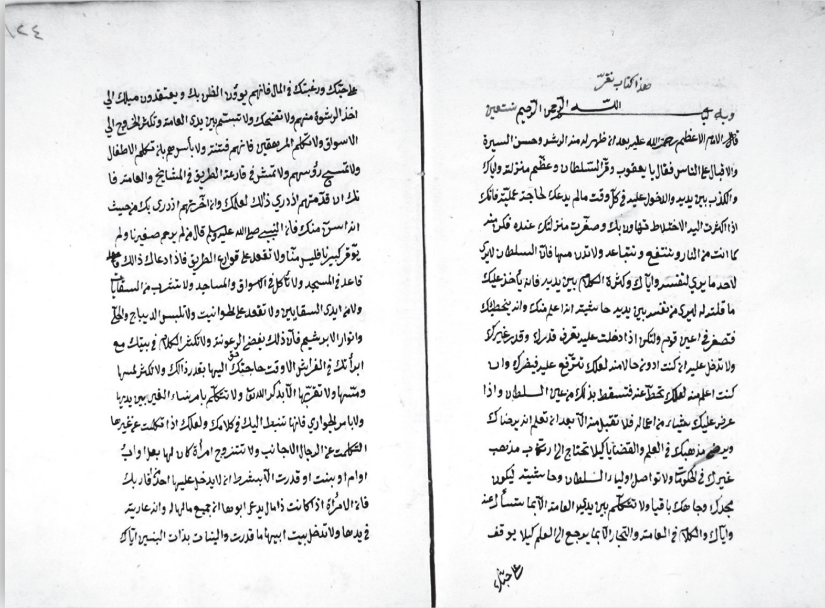 هذا كتاب تقرّ
وبه بسم الله الرحمن الرحيم نستعين
قال الامام الاعظم رحمة الله عليه بعد ان ظهر له منه الرشد وحسن السيرة
والاقبال على الناس فقال يا يعقوب وقّر السلطان وعظّم منزلته واياك
والكذب بين يديه والدخول عليه في كلّ وقت مالم يدعك لحاجة علميّة فانّك
اذا اكثرت اليه الاختلاط تهاون بك وصغرت منزلتك عنده فكن منه
كما انت من النار وتنتفع وتتباعد ولا تدن منها فانّ السلطان لا يرى
لاحد ما يرى لنفسه وايّاك وكثرة الكلام بين يديه فانه يأخذ عليك
ما قلته له ليرى من نفسه بين يديه حاشيته انه اعلم منك وانه يخطيك
فتصغر في اعين قومه ولتكن اذا دخلت عليه تعرف قدرك وقدر غيرك
ولا تدخل عليه ان كنت ادون حالا منه لعلك تترفع عليه فيضرك وان
كنت اعلم منه لعلك تحطّ عنه فتسقط بذلك من عين السلطان واذا
عرض عليك شيئا من اعماله فلا تقبل منه الّا بعد ان تعلم انه يرضاك
ويرضى مذهبك في العلم والقضايا كيلا تحتاج الى ارتكاب مذهب
غيرك في الحكومات ولا تواصل اولياء السلطان وحاشيته ليكون
مجدك وجاهك باقيا ولا تتكلّم بين يدي العامة الّا بما تسأل عنه
وايّاك والكلام في العامة والتجار الّا بما يرجع الى العلم كيلا يوقف
على حبّك
١٢٤
على حبّك ورغبتك في المال فانهم يسؤن الظن بك ويعتقدون ميلك الى
اخذ الرشوة منهم ولا تضحك ولا تبسم بين يدى العامة ولا تكثر الخروج الى
الاسواق ولا تكلم المراهقين فانهم فتنة ولا بأس بان تكلم الاطفال
ولا تمسح رؤسهم ولا تمش في قارعة الطريق مع المشايخ والعامة فا
نك ان قدّمتهم ازدرى ذلك لعلمك وان اخّرتهم ازدرى بك من حيث
انه اسنّ منك فانّ النبي صلى الله عليه وسلم قال من لم يرحم صغيرنا ولم
يوقر كبيرنا فليس منّا ولا تقعد على قوارع الطريق فاذا دعاك ذلك
قاعد في المسجد ولا تأكل في الاسواق والمساجد ولا تشرب من السقايات
ولا من ايدى السقايين ولا تقعد على الحوانيت ولا تلبس الديباج والحلى
وانواع الابريشم فانّ ذلك يفضى الى الرعونة ولا تكثر الكلام في بيتك مع
امرأتك في الفراش الّا وقت حاجتك اليها بقدر ذلك ولا تكثر لمسها
ومسّها ولا تقربها الّا بذكر الله تعالى ولا تتكلّم بامر نساء الغير بين يديها
ولا بامر الجواري فانها تنبسط اليك في كلامك ولعلك اذا تكلمت عن غيرها
تكلمت عن الرجال الاجانب ولا تتزوج امرأة كان لها بعل او اب
او ام او بنت ان قدرت الّا بشرط ان لا يدخل عليها احد من اقاربك
فانّ الامرأة اذا كانت ذا مال يدعى ابوها ان جميع مالها له وانه عارية
في يدها ولا تدخل بيت ابيها ما قدرت والبنات بذات البنين ايّاك